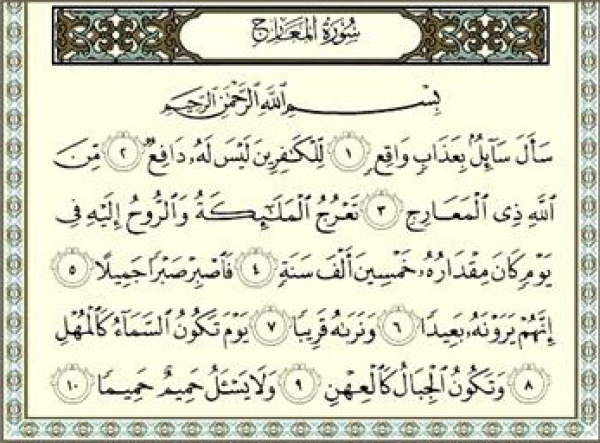 سُورَةُ المَعَارِجِ
بِسْمِ اللَّهِ الرَّحْمَٰنِ الرَّحِيمِ
سَأَلَ سَآئِلٌۢ بِعَذَابٍ وَاقِعٍ ١ لِّلْكَٰفِرِينَ لَيْسَ لَهُۥ دَافِعٌ ٢ مِّنَ
ٱللَّهِ ذِى ٱلْمَعَارِجِ ٣ تَعْرُجُ ٱلْمَلَٰٓئِكَةُ وَٱلرُّوحُ إِلَيْهِ فِى
يَوْمٍ كَانَ مِقْدَارُهُۥ خَمْسِينَ أَلْفَ سَنَةٍ ٤ فَٱصْبِرْ صَبْرًا جَمِيلًا ٥
إِنَّهُمْ يَرَوْنَهُۥ بَعِيدًا ٦ وَنَرَىٰهُ قَرِيبًا ٧ يَوْمَ تَكُونُ ٱلسَّمَآءُ كَٱلْمُهْلِ
٨ وَتَكُونُ ٱلْجِبَالُ كَٱلْعِهْنِ ٩ وَلَا يَسْـَٔلُ حَمِيمٌ حَمِيمًا ١٠